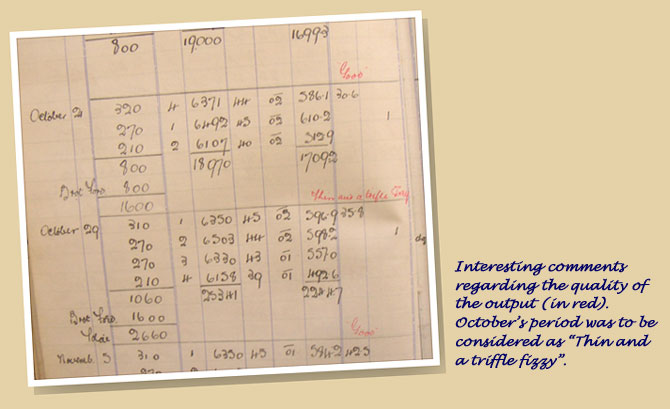 800 19000 16993
Good
October 21 320 4 6371 44 02 586.1 30.6
270 1 6492 45 02 610.2 1
210 2 6107 40 02 512.9
800 18970 1709.2
800
1600
Thin and a trifle
October 29 310 1 6350 45 02 596.9 35.8
270 2 6503 44 02 598.2 1
270 3 6330 43 01 557.0
210 4 6158 39 01 492.6
1060 25341 2244.7
1600
2660
Good
Novemb. 5 310 1 6350 45 01 584.2 42.5
270
Interesting comments
regarding the quality of
the output (in red).
October's period was to be
considered as "Thin and
a triffle fizzy".